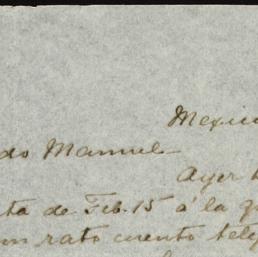 Mexico
do Manuel
Ayer
ta de Feb. 15 á la q
un rato cuento tele